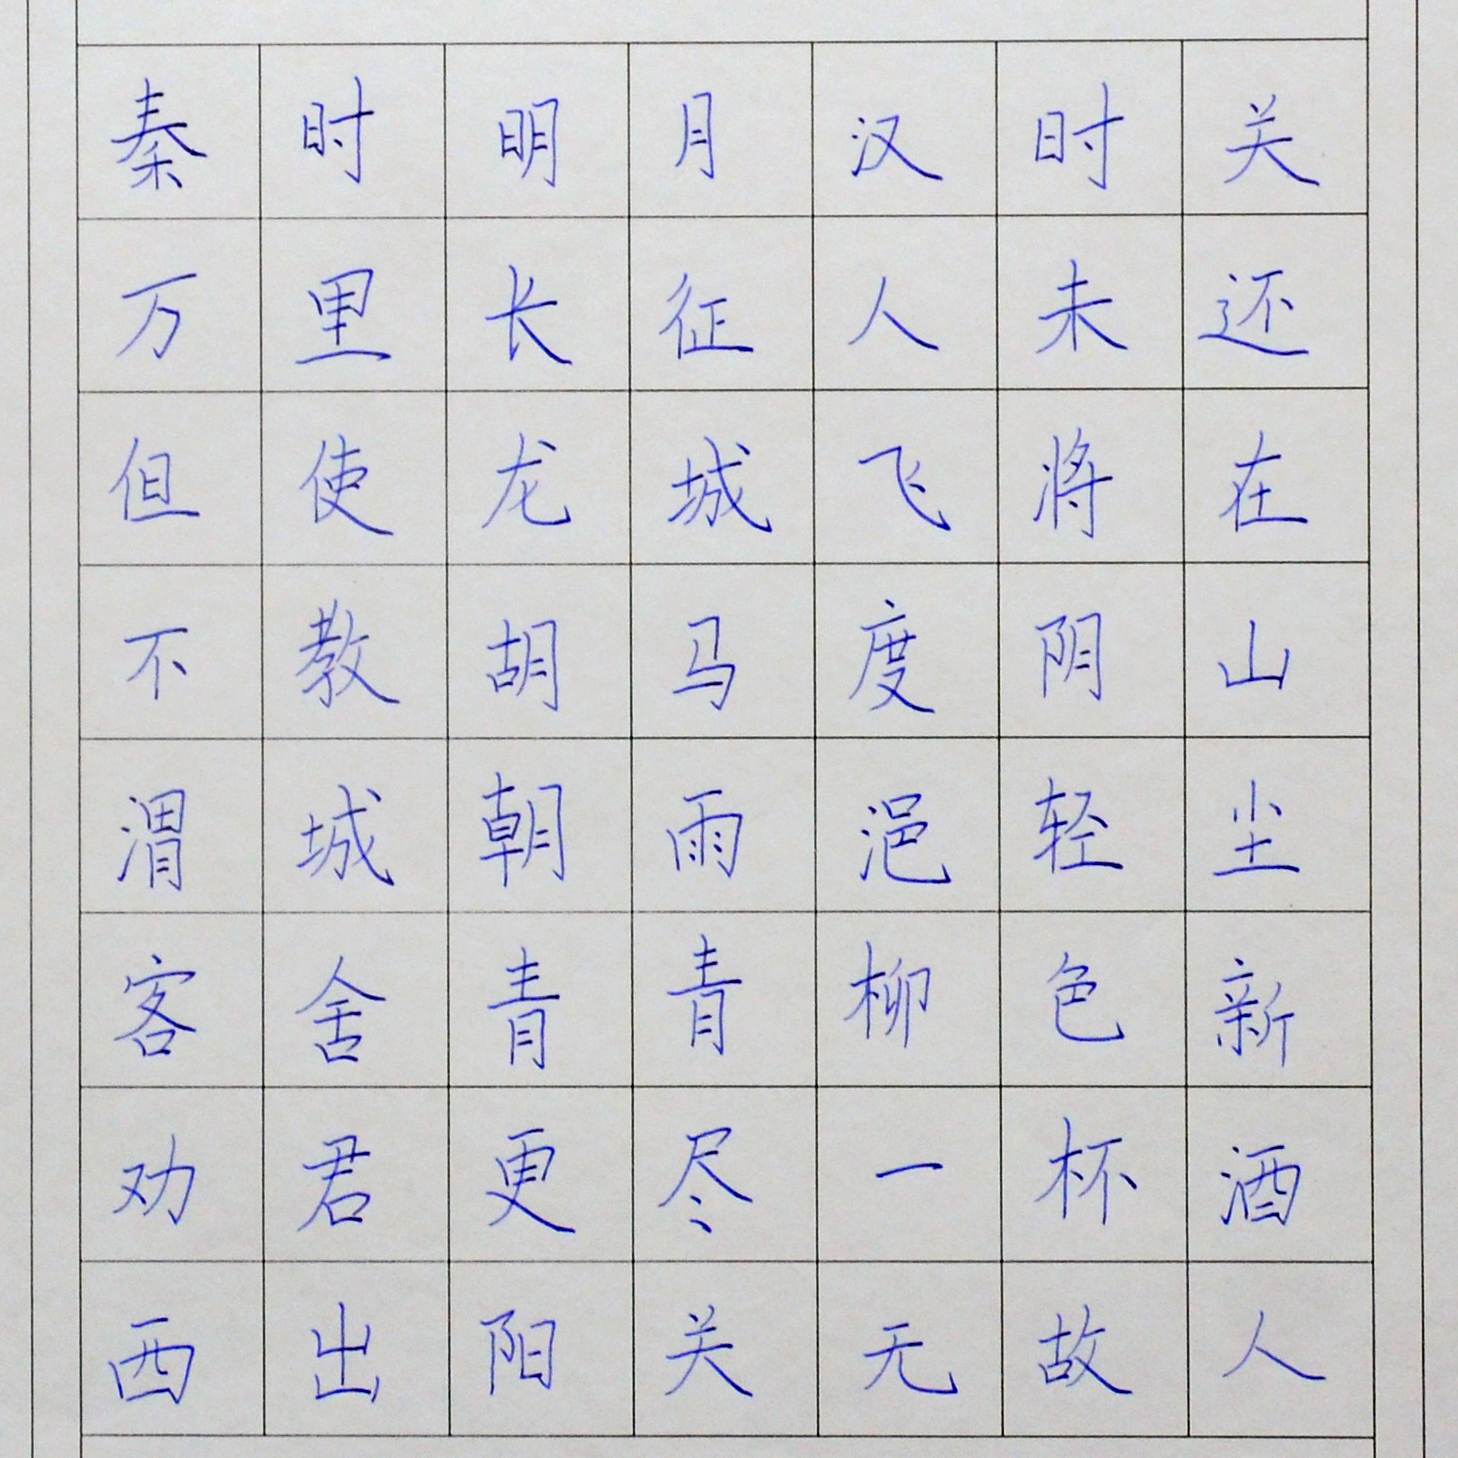 秦时明月汉时关
万里长征人未还
但使龙城飞将在
不教胡马度阴山
渭城朝雨浥轻尘
客舍青青柳色新
劝君更尽一杯酒
西出阳关无故人